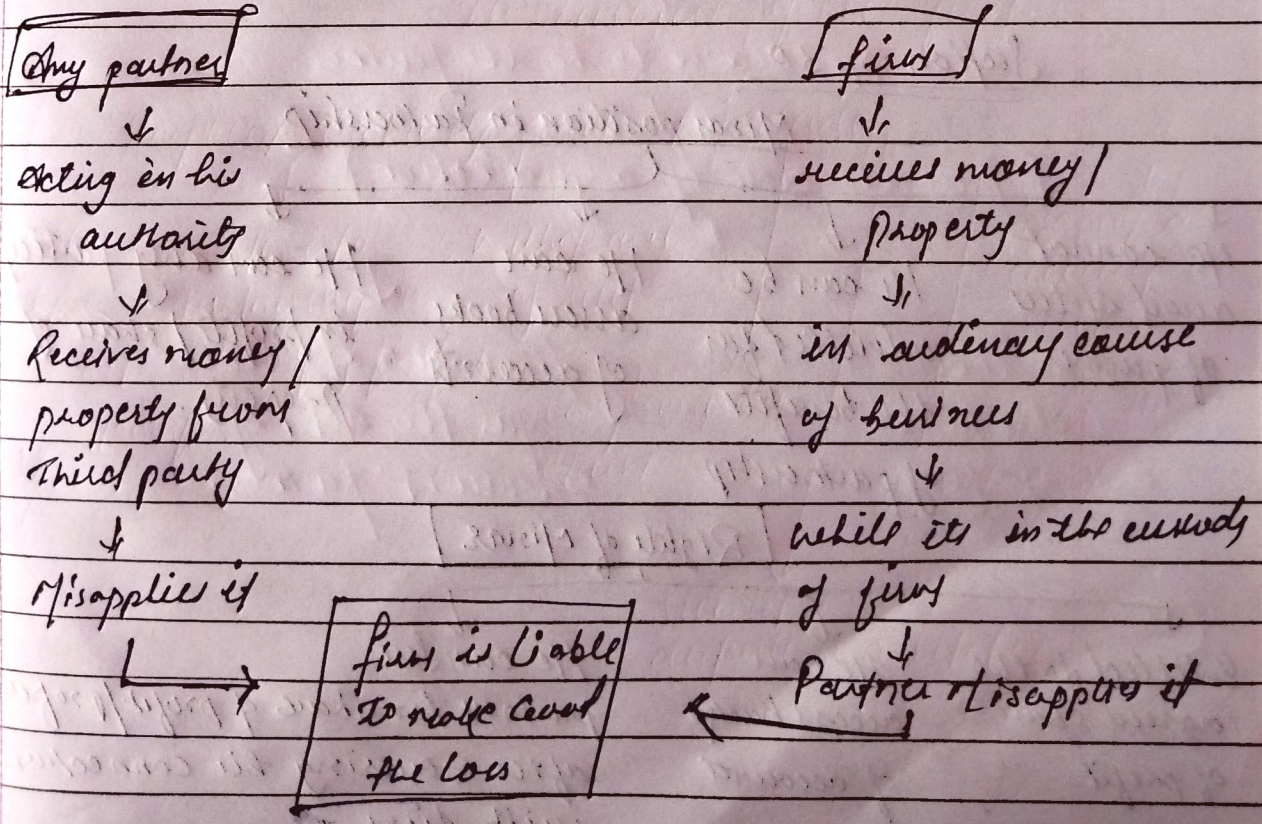 Any partner
↓
Acting in his
authority
↓
Receives money /
property from
Third party
↓
Misapplies it
firm
↓
receives money /
Property
↓
in ordinary course
of business
↓
while its in the custody
of firm
↓
Partner Misapplies it
firm is liable
to make Good
the loss
[Rights of Minor]